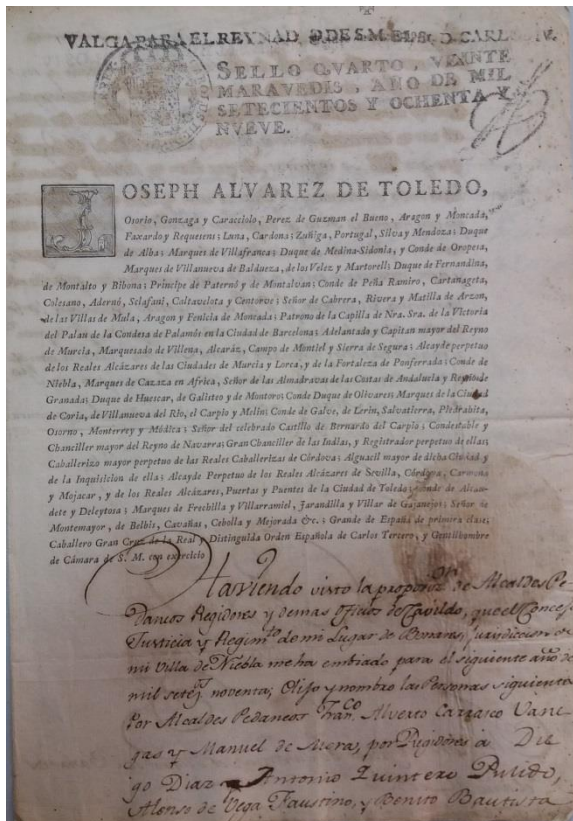 VALGA PARA EL REYNADO DE S.M. EL S.D. CARLOS IV.
SELLO QVARTO, VEINTE
MARAVEDIS, AÑO DE MIL
SETECIENTOS Y OCHENTA Y
NVEVE.
JOSEPH ALVAREZ DE TOLEDO,
Osorio, Gonzaga y Caracciolo, Perez de Guzman el Bueno, Aragon y Moncada,
Faxardo y Requesens; Luna, Cardona; Zuñiga, Portugal, Silva y Mendoza: Duque
de Alba: Marques de Villafranca; Duque de Medina-Sidonia, y Conde de Oropesa,
Marques de Villanueva de Baldueza, de los Velez y Martorell: Duque de Fernandina,
de Montalto y Bibona; Principe de Paternó y de Montalvan: Conde de Peña Ramiro, Cartanageta,
Colesano, Adernó, Sclafani, Caltavelota y Centorve: Señor de Cabrera, Rivera y Matilla de Arzon,
de las Villas de Mula, Aragon y Fenicia de Moncada: Patrono de la Capilla de Nra. Sra. de la Victoria
del Palau de la Condesa de Palamós en la Ciudad de Barcelona: Adelantado y Capitan mayor del Reyno
de Murcia, Marquesado de Villena, Alcaráz, Campo de Montiel y Sierra de Segura: Alcayde perpetuo
de los Reales Alcázares de las Ciudades de Murcia y Lorca, y de la Fortaleza de Ponferrada: Conde de
Niebla, Marques de Cazaza en Africa, Señor de las Almadravas de las Costas de Andalucía y Reyno de
Granada: Duque de Huescar, de Galisteo y de Montoro: Conde Duque de Olivares: Marques de la Ciudad
de Coria, de Villanueva del Rio, el Carpio y Melin: Conde de Galve, de Lerin, Salvatierra, Piedrabita,
Osorno, Monterrey y Módica: Señor del celebrado Castillo de Bernardo del Carpio: Condestable y
Chanciller mayor del Reyno de Navarra: Gran Chanciller de las Indias, y Registrador perpetuo de ellas:
Caballerizo mayor perpetuo de las Reales Caballerizas de Córdova: Alguacil mayor de dicha Ciudad y
de la Inquisicion de ella: Alcayde Perpetuo de los Reales Alcázares de Sevilla, Córdova, Carmona
y Mojacar, y de los Reales Alcázares, Puertas y Puentes de la Ciudad de Toledo: Conde de Alcau-
dete y Deleytosa: Marques de Frechilla y Villarramiel, Jarandilla y Villar de Gajanejos: Señor de
Montemayor, de Belbis, Cavañas, Cebolla y Mejorada &c. Grande de España de primera clase:
Caballero Gran Cruz de la Real y Distinguida Orden Española de Carlos Tercero, y Gentilhombre
de Cámara de S. M. con exercicio
Haviendo visto la proposon. de Alcaldes Pe-
daneos Regidores y demas Oficios de Cavildo, que el Concejo
Justicia y Regimto. de mi Lugar de Bonares, jurisdiccion de
mi Villa de Niebla me ha embiado para el siguiente año de
mil setes. noventa; Elijo y nombro las Personas siguientes
Por Alcaldes Pedaneos Franco. Alverto Carrasco Vane-
gas y Manuel de Mora, por Regidores a Die
go Diaz Antonio Quintero Pulido,
Alonso de Vega Faustino, y Benito Bautista